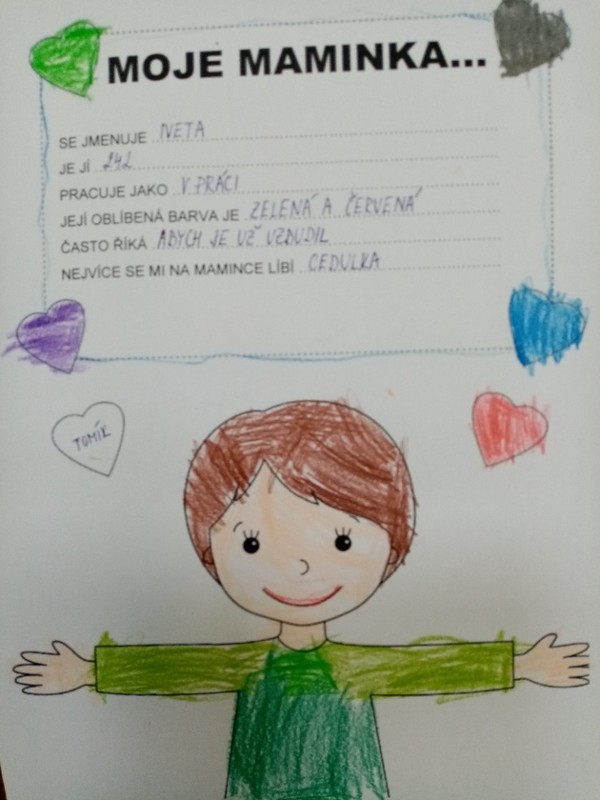 MOJE MAMINKA...
SE JMENUJE IVETA
JE JÍ 242
PRACUJE JAKO V PRÁCI
JEJÍ OBLÍBENÁ BARVA JE ZELENÁ A ČERVENÁ
ČASTO ŘÍKÁ ABYCH JE UŽ VZBUDIL
NEJVÍCE SE MI NA MAMINCE LÍBÍ CEDULKA
TOMÍK